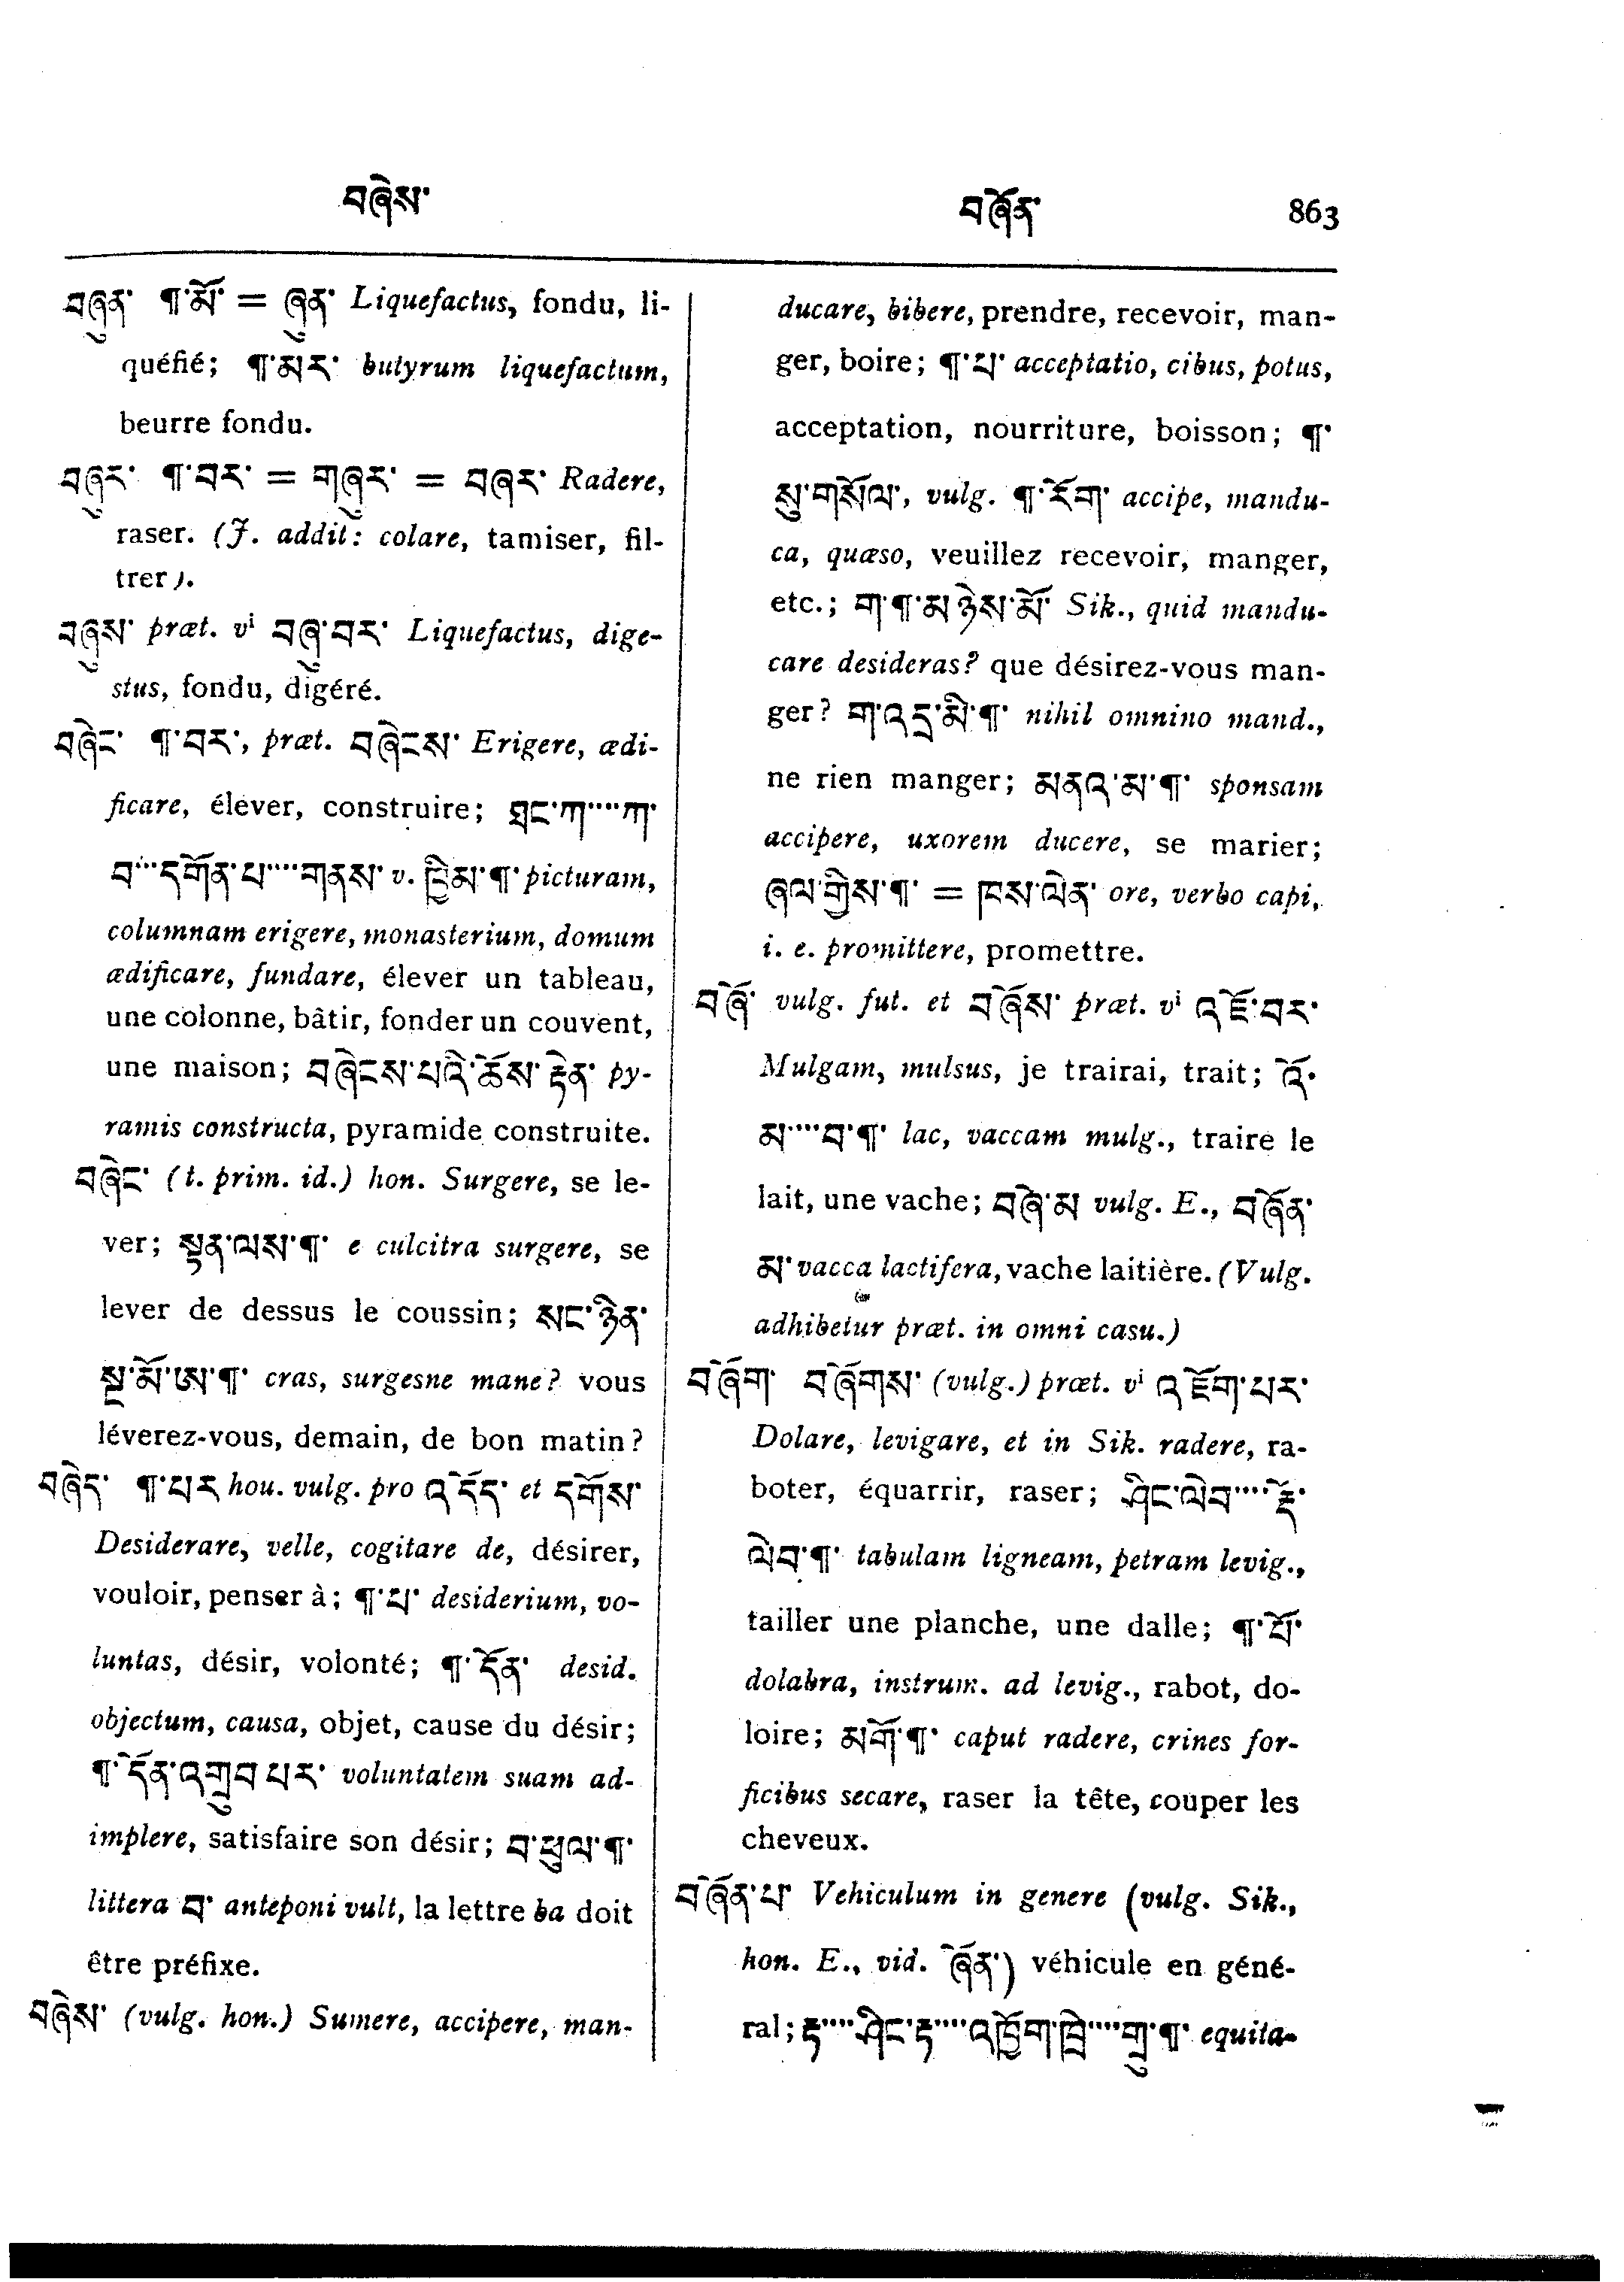 བཞེས་ བཞོན་ 863
བཞུན་ ¶་མོ་ = ཞུན་ Liquefactus, fondu, li-
quéfié; ¶་མར་ butyrum liquefactum,
beurre fondu.
བཞུར་ ¶་བར་ = གཞུར་ = བཞར་ Radere,
raser. (J. addit: colare, tamiser, fil-
trer).
བཞུས་ præt. vⁱ བཞུ་བར་ Liquefactus, dige-
stus, fondu, digéré.
བཞེང་ ¶་བར་, præt. བཞེངས་ Erigere, ædi-
ficare, élever, construire; ཐང་ཀ་····ཀ་
བ་···དགོན་པ་····གནས་ v. ཁྱིམ་¶་ picturam,
columnam erigere, monasterium, domum
ædificare, fundare, élever un tableau,
une colonne, bâtir, fonder un couvent,
une maison; བཞེངས་པའི་ཆོས་རྟེན་ py-
ramis constructa, pyramide construite.
བཞེང་ (t. prim. id.) hon. Surgere, se le-
ver; སྟན་ལས་¶་ e culcitra surgere, se
lever de dessus le coussin; སང་ཉིན་
སྔ་མོ་ཨ་¶་ cras, surgesne mane? vous
léverez-vous, demain, de bon matin?
བཞེད་ ¶་པར hou. vulg. pro འདོད་ et དགོས་
Desiderare, velle, cogitare de, désirer,
vouloir, penser à; ¶་པ་ desiderium, vo-
luntas, désir, volonté; ¶་དོན་ desid.
objectum, causa, objet, cause du désir;
¶་དོན་འགྲུབ་པར་ voluntatem suam ad-
implere, satisfaire son désir; བ་ཕུལ་¶་
littera བ་ anteponi vult, la lettre ba doit
être préfixe.
བཞེས་ (vulg. hon.) Sumere, accipere, man-
ducare, bibere, prendre, recevoir, man-
ger, boire; ¶་པ་ acceptatio, cibus, potus,
acceptation, nourriture, boisson; ¶་
སུ་གསོལ་, vulg. ¶་རོག་ accipe, mandu-
ca, quæso, veuillez recevoir, manger,
etc.; ག་¶་མཉེས་མོ་ Sik., quid mandu-
care desideras? que désirez-vous man-
ger? ག་འདྲ་མི་¶་ nihil omnino mand.,
ne rien manger; མནའ་མ་¶་ sponsam
accipere, uxorem ducere, se marier;
ཞལ་གྱིས་¶་ = ཁས་ལེན་ ore, verbo capi,
i. e. promittere, promettre.
བཞོ་ vulg. fut. et བཞོས་ præt. vⁱ འཇོ་བར་
Mulgam, mulsus, je trairai, trait; འོ་
མ་····བ་¶་ lac, vaccam mulg., traire le
lait, une vache; བཞེ་མ vulg. E., བཞོན་
མ་ vacca lactifera, vache laitière. (Vulg.
adhibetur præt. in omni casu.)
བཞོག་ བཞོགས་ (vulg.) præt. vⁱ འཇོག་པར་
Dolare, levigare, et in Sik. radere, ra-
boter, équarrir, raser; ཤིང་ལེབ་····རྡོ་
ལེབ་¶་ tabulam ligneam, petram levig.,
tailler une planche, une dalle; ¶་པོ་
dolabra, instrum. ad levig., rabot, do-
loire; མགོ་¶་ caput radere, crines for-
ficibus secare, raser la tête, couper les
cheveux.
བཞོན་པ་ Vehiculum in genere (vulg. Sik.,
hon. E., vid. ཞོན་) véhicule en géné-
ral; རྟ་····ཤིང་རྟ་····འཁྱོག་ཁྲི་····གྲུ་¶་ equita-